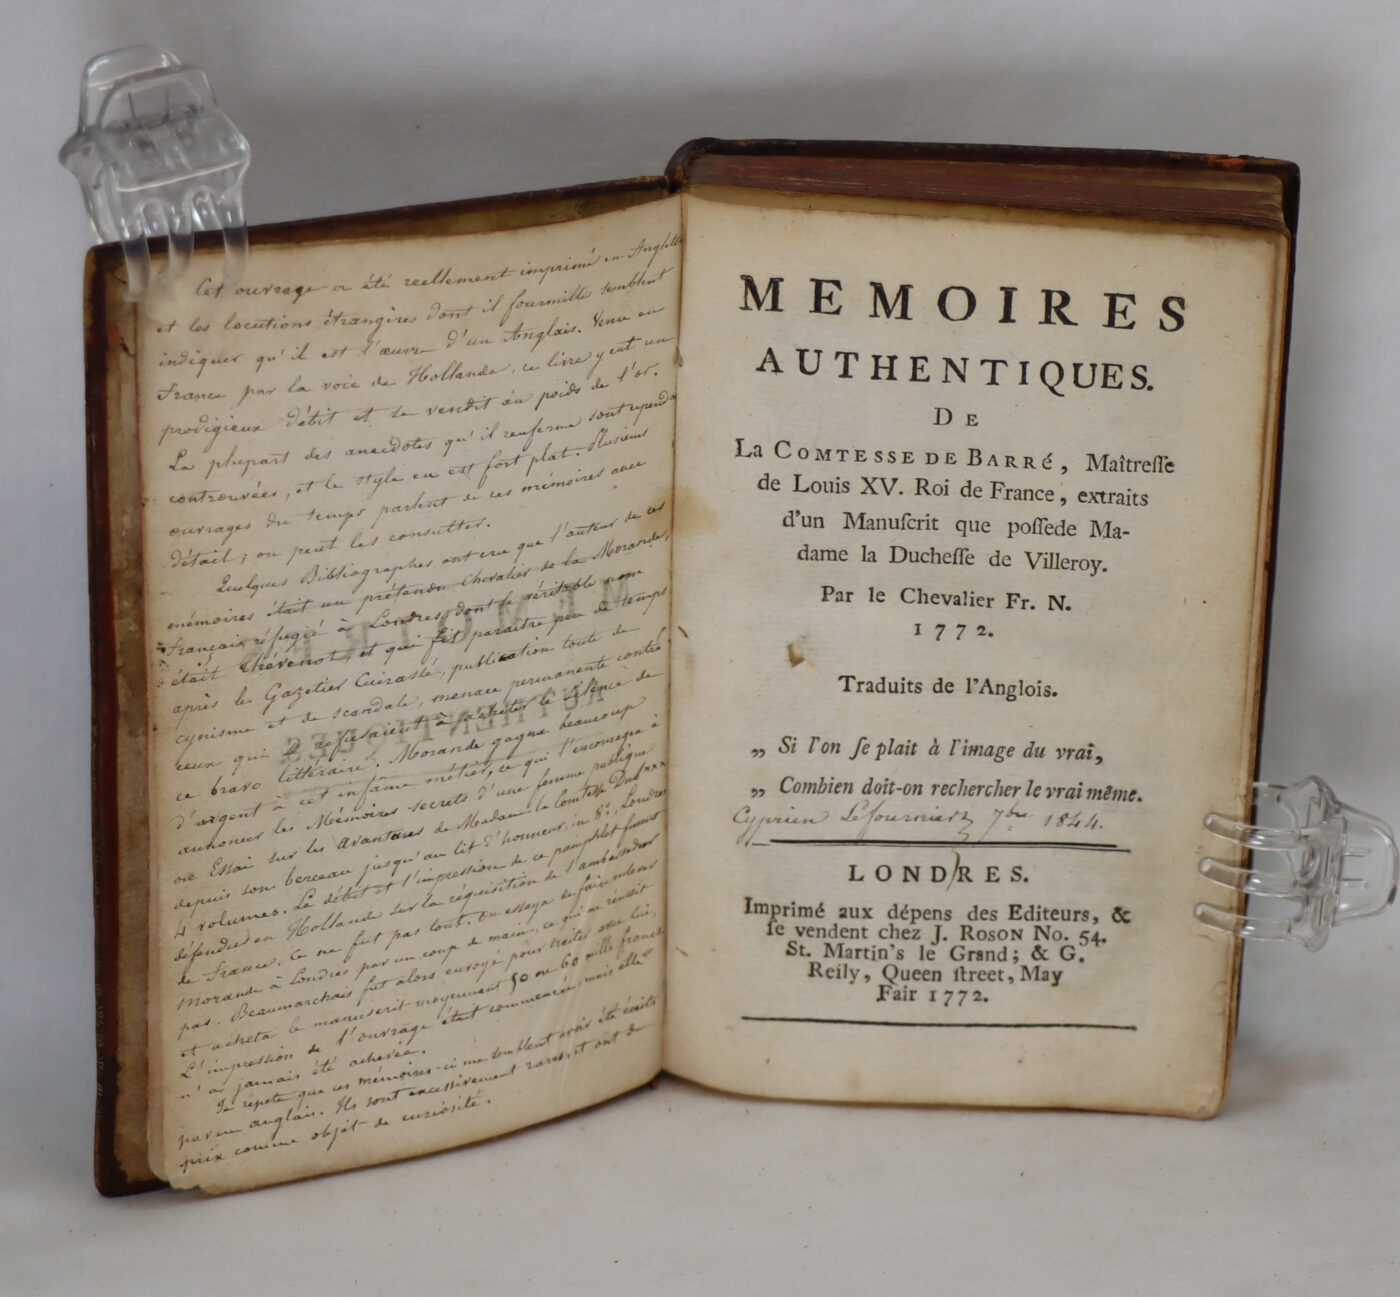 Cet ouvrage a été reellement imprimé en Anglete
et les locutions étrangères dont il fourmille semblent
indiquer qu'il est l'œuvre d'un Anglais. Venu en
France par la voie de Hollande, ce livre y eut un
prodigieux débit et se vendit au poids de l'or.
La plupart des anecdotes qu'il renferme sont cependa
controuvées, et le style en est fort plat. Plusieurs
ouvrages du temps parlent de ces mémoires avec
détail; on peut les consulter.
Quelques Bibliographes ont cru que l'auteur de ces
mémoires était un prétendu chevalier de la Morande,
français réfugié à Londres dont le véritable nom
était Thévenot, et qui fit paraître peu de temps
après le Gazetier Cuirassé, publication toute de
cynisme et de scandale, menace permanente contre
ceux qui se refusaient à acheter le silence de
ce bravo littéraire. Morande gagna beaucoup
d'argent à cet infâme métier, ce qui l'encouragea à
annoncer les Mémoires secrets d'une femme publique
ou Essai sur les avantures de Madame la Comtesse Dub***
depuis son berceau jusqu'au lit d'honneur, in 8º, Londres
4 volumes. Le débit et l'impression de ce pamphlet furent
défendus en Hollande sur la réquisition de l'ambassadeur
de France. Ce ne fut pas tout. On essaya de faire enlever
Morande à Londres par un coup de main, ce qui ne réussit
pas. Beaumarchais fut alors envoyé pour traiter avec lui,
et acheta le manuscrit moyennant 50 ou 60 mille francs
L'impression de l'ouvrage était commencée, mais elle
n'a jamais été achevée.
Je répète que ces mémoires-ci me semblent avoir été écrits
par un anglais. Ils sont excessivement rares, et ont du
prix comme objet de curiosité.
MEMOIRES
AUTHENTIQUES.
DE
La COMTESSE DE BARRé, Maîtreſſe
de Louis XV. Roi de France, extraits
d'un Manuſcrit que poſſede Ma-
dame la Ducheſſe de Villeroy.
Par le Chevalier Fr. N.
1772.
Traduits de l'Anglois.
„ Si l'on ſe plait à l'image du vrai,
„ Combien doit-on rechercher le vrai même.
Cyprien 7bre 1844.
LONDRES.
Imprimé aux dépens des Editeurs, &
ſe vendent chez J. ROSON No. 54.
St. Martin's le Grand; & G.
Reily, Queen ſtreet, May
Fair 1772.